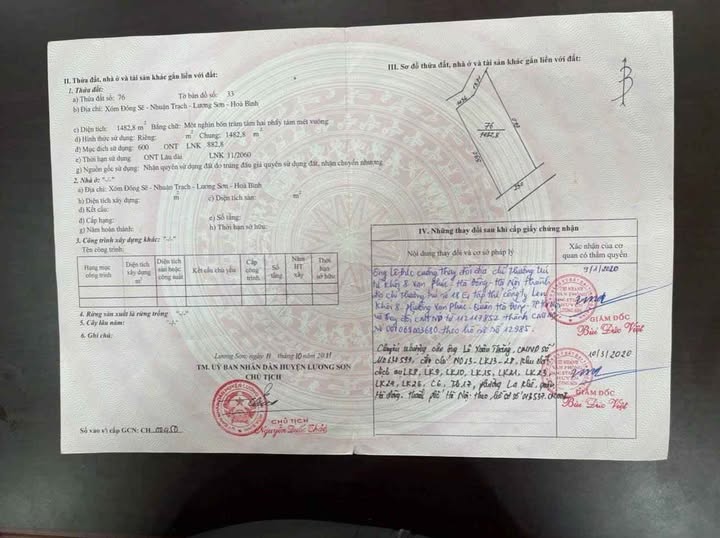 II. Thửa đất, nhà ở và tài sản khác gắn liền với đất:
1. Thửa đất:
a) Thửa đất số: 76 Tờ bản đồ số: 33
b) Địa chỉ: Xóm Đồng Sẽ - Nhuận Trạch - Lương Sơn - Hoà Bình
c) Diện tích: 1482,8 m² Bằng chữ: Một nghìn bốn trăm tám hai phẩy tám mét vuông
d) Hình thức sử dụng: Riêng: m² Chung: 1482,8 m²
đ) Mục đích sử dụng: 600 ONT LNK 882,8
e) Thời hạn sử dụng: ONT Lâu dài LNK 11/2060
g) Nguồn gốc sử dụng: Nhận quyền sử dụng đất do trúng đấu giá quyền sử dụng đất, nhận chuyển nhượng
2. Nhà ở: "-.-"
a) Địa chỉ: Xóm Đồng Sẽ - Nhuận Trạch - Lương Sơn - Hoà Bình
b) Diện tích xây dựng: m² c) Diện tích sàn: m²
d) Kết cấu:
đ) Cấp hạng: e) Số tầng:
g) Năm hoàn thành: h) Thời hạn sở hữu:
3. Công trình xây dựng khác: "-.-"
Tên công trình:
Hạng mục công trình Diện tích xây dựng m² Diện tích sàn hoặc công suất Kết cấu chủ yếu Cấp công trình Số tầng Năm HT xây Thời hạn sở hữu
4. Rừng sản xuất là rừng trồng "-.-"
5. Cây lâu năm: "-.-"
6. Ghi chú:
Lương Sơn, ngày 11 tháng 10 năm 2011
TM. UỶ BAN NHÂN DÂN HUYỆN LƯƠNG SƠN
CHỦ TỊCH
CHỦ TỊCH
Nguyễn Quốc
Số vào vị cấp GCN: CH
III. Sơ đồ thửa đất, nhà ở và tài sản khác gắn liền với đất:
B
76
1482,8
IV. Những thay đổi sau khi cấp giấy chứng nhận
Nội dung thay đổi và cơ sở pháp lý Xác nhận của cơ quan có thẩm quyền
Ông Lê Đức Cường thay đổi địa chỉ thường trú
từ Khối 8 Vạn Phúc - Hà Đông - Hà Nội thành
địa chỉ thường trú số 18 tập thể công ty Len
Khối 8 Phường Vạn Phúc - Quận Hà Đông - TP Hà Nội
và thay đổi CMND từ 112117852 thành
theo hồ sơ số 12985.
9/1/2020
GIÁM ĐỐC
Bùi Đức Việt
Chuyển nhượng cho ông Lê Xuân CMND số
địa chỉ NO13-LK13-28, Khu
LK8, LK9, LK10, LK15, LK21, LK23,
LK24, LK26, phường La Khê, quận
Hà Đông, Thành phố Hà Nội theo hồ sơ số
10/3/2020
GIÁM ĐỐC
Bùi Đức Việt